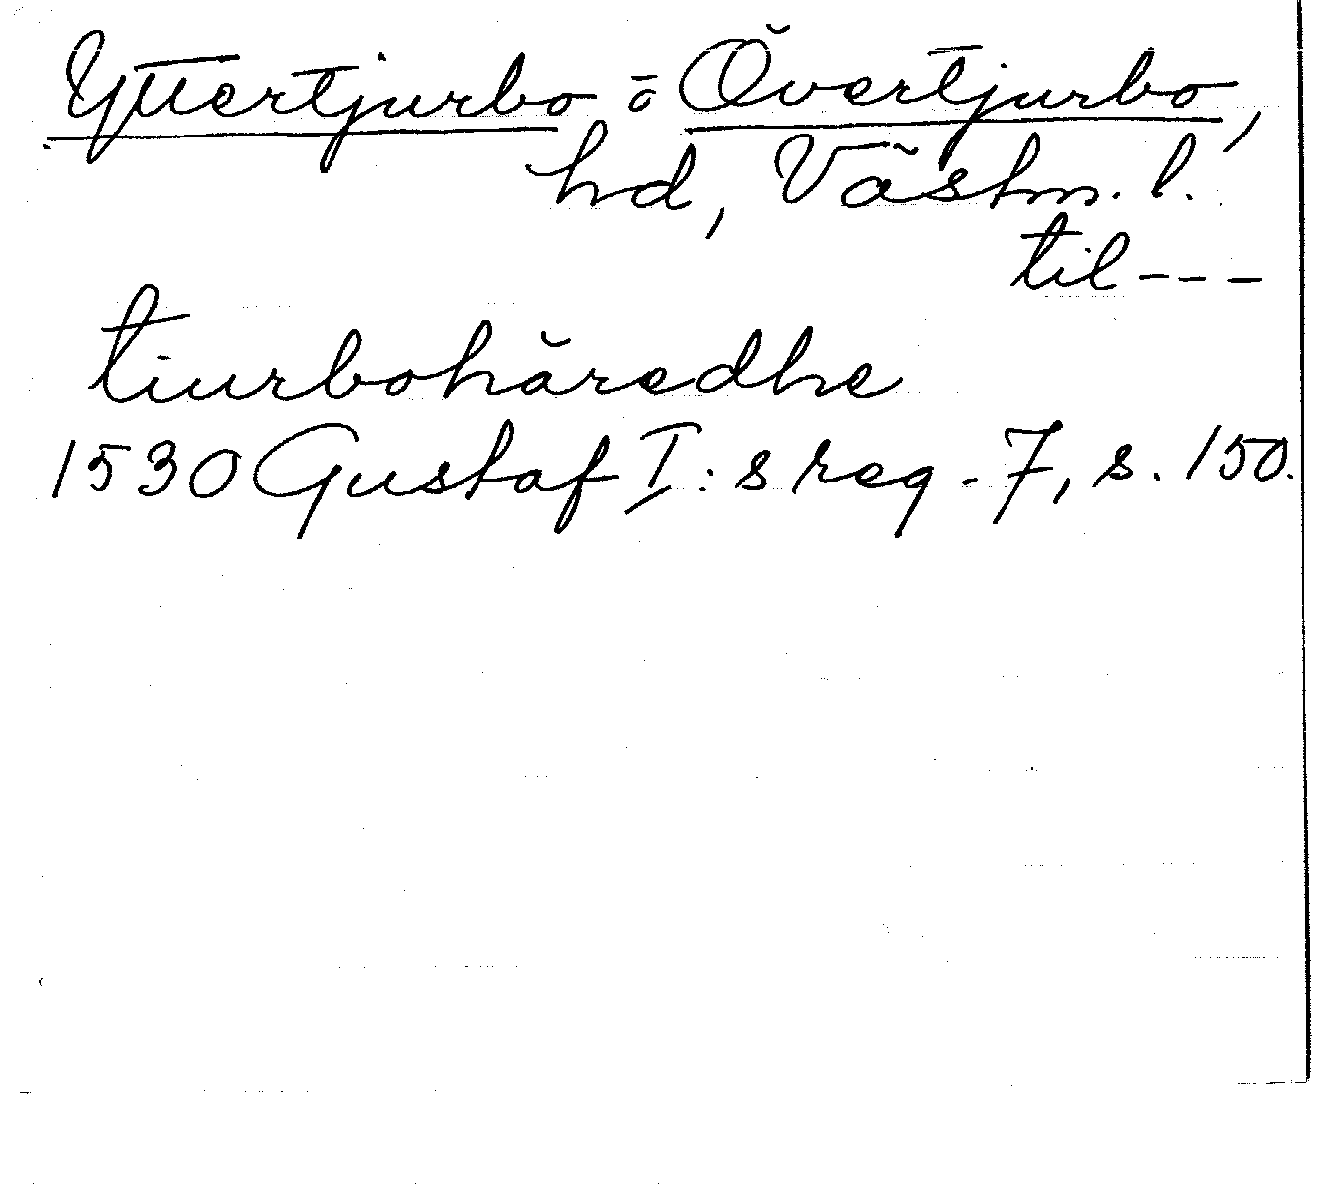 Yttertjurbo o Övertjurbo,
hd, Västm. l.
til ---
tiurbohäredhe
1530 Gustaf I:s reg. 7, s. 150.